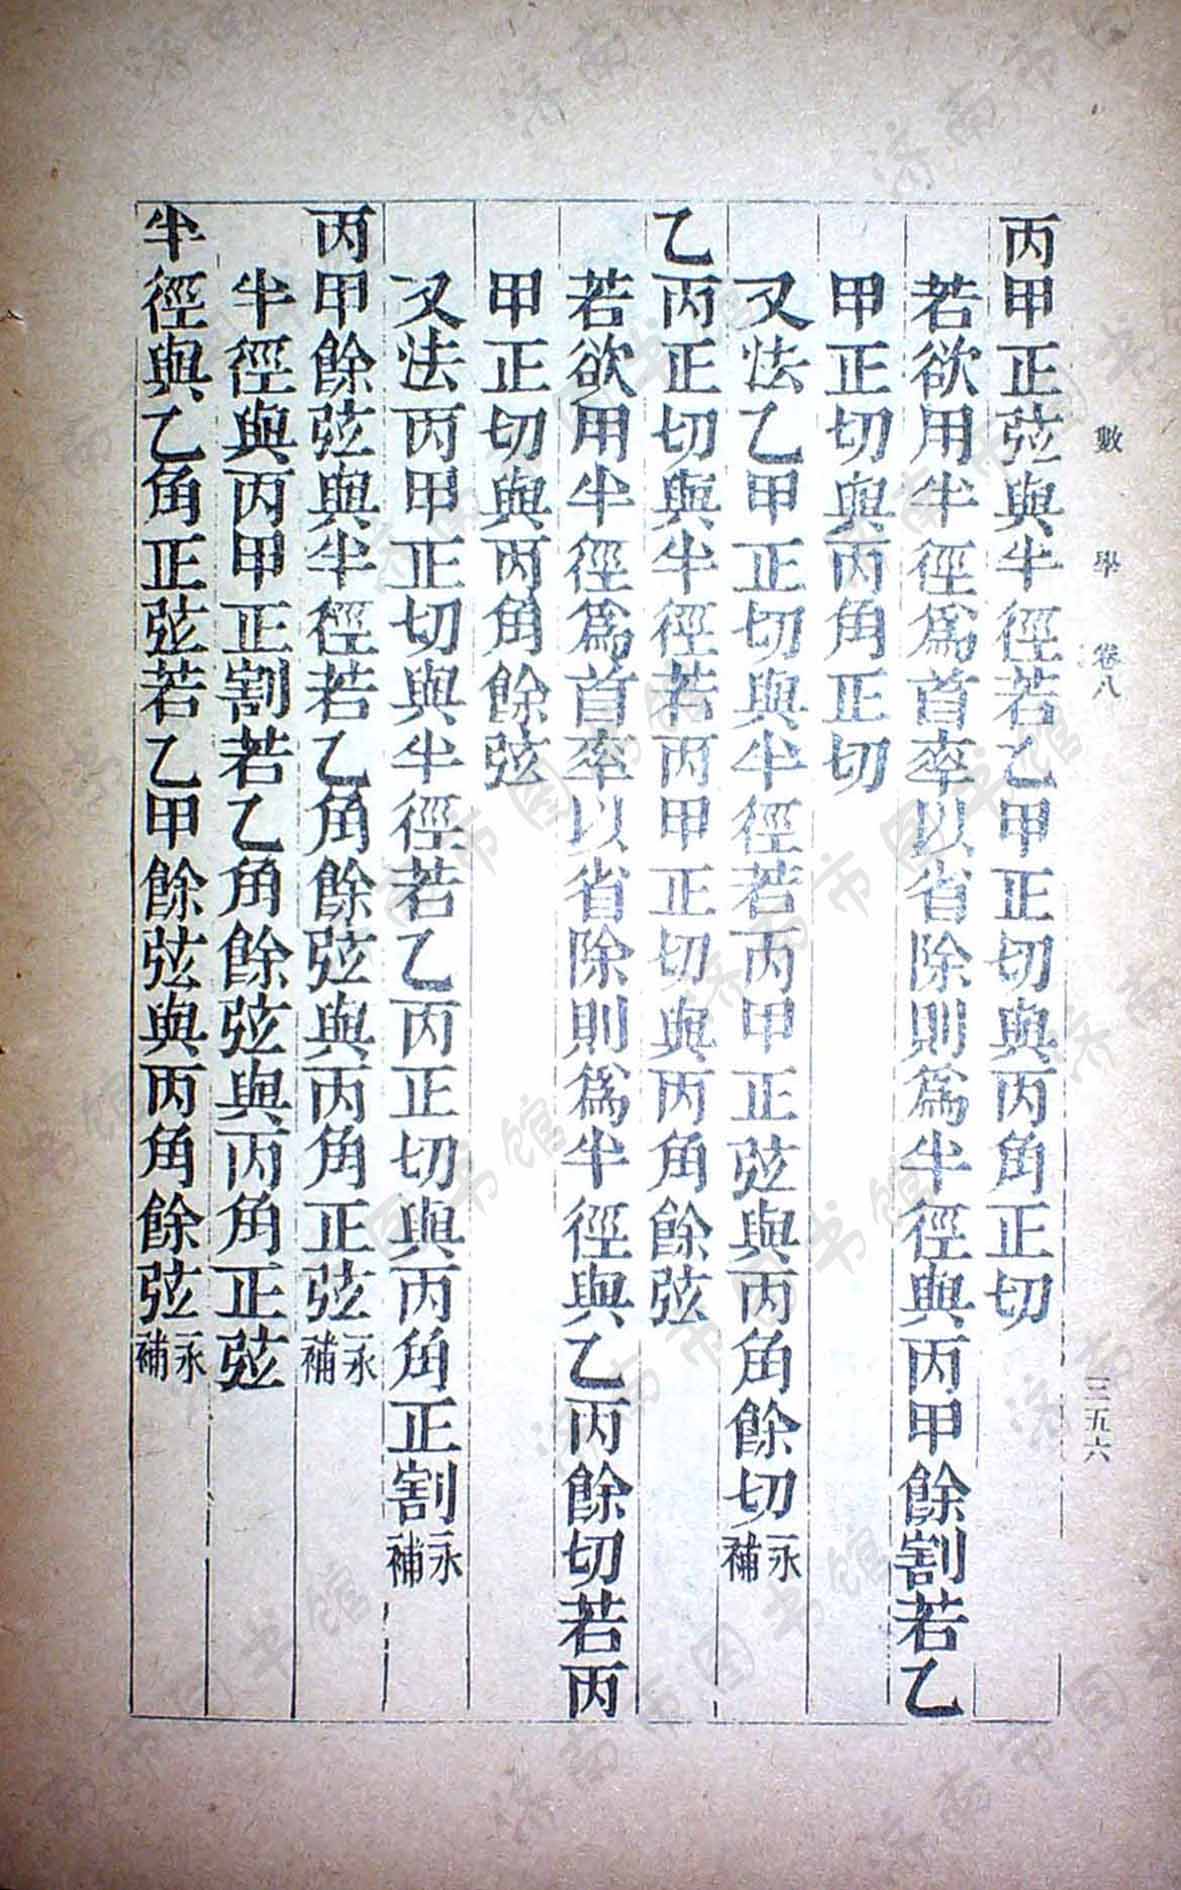 數學 卷八 三五六
丙甲正弦與半徑若乙甲正切與丙角正切
若欲用半徑爲首率以省除則爲半徑與丙甲餘割若乙
甲正切與丙角正切
又法乙甲正切與半徑若丙甲正弦與丙角餘切永補
乙丙正切與半徑若丙甲正切與丙角餘弦
若欲用半徑爲首率以省除則爲半徑與乙丙餘切若丙
甲正切與丙角餘弦
又法丙甲正切與半徑若乙丙正切與丙角正割永補
丙甲餘弦與半徑若乙角餘弦與丙角正弦永補
半徑與丙甲正割若乙角餘弦與丙角正弦
半徑與乙角正弦若乙甲餘弦與丙角餘弦永補
济南市图书馆